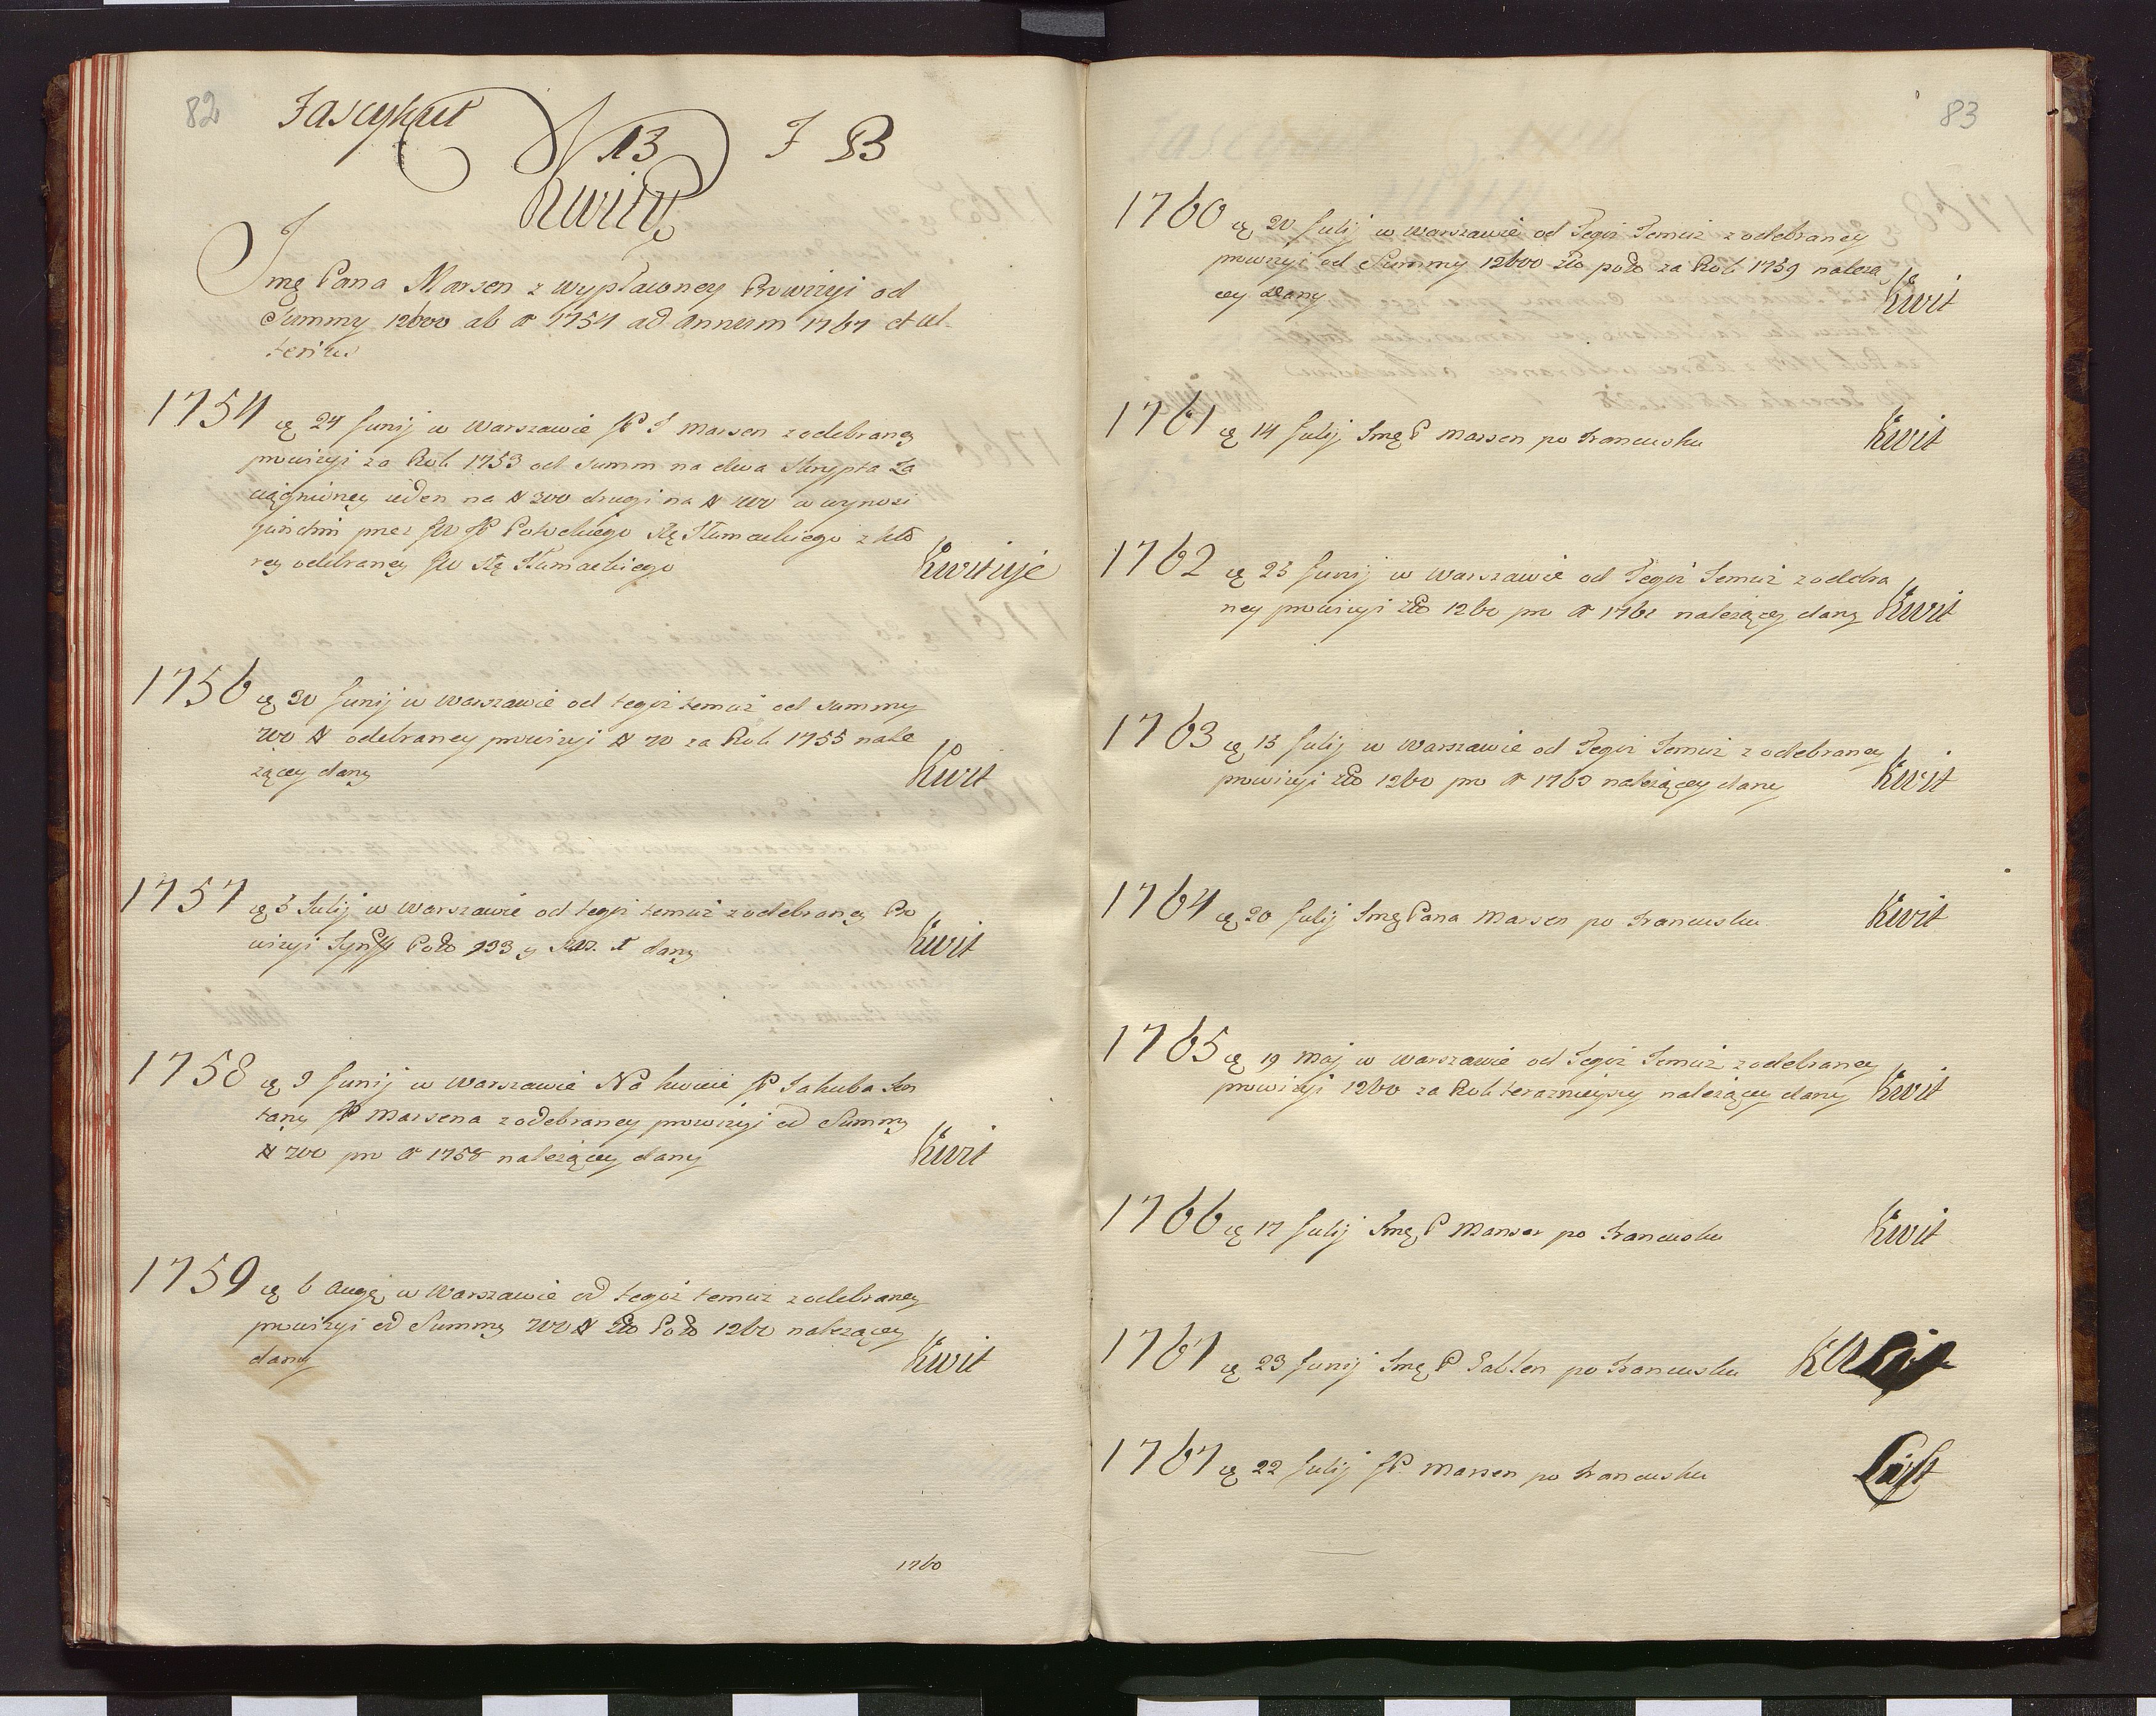 82
Fascykuł N 13 F B
Kwity
Jmę Pana Marsen z wypłaconey Prowizyi od
Summy 12600 ab A 1754 ad Annum 1767 et ul-
terius
1754 ę 24 Junij w Warszawie JP J Marsen z odebraney
prowizyi za Rok 1753 od summ na dwa skrypta za
ciągnioney ieden na # 300 drugi na # 400 w wynosi
przez JW JP Potockiego Stę Tłumackiego z któ
rey odebraney JW Stę Tłumackiego Kwituje
1756 ę 30 Junij w Warszawie od tegoż temuż od summy
700 # odebraney prowizyi # 70 za Rok 1755 nale
żącey dany Kwit
1757 ę 5 Julij w Warszawie od tegoż temuż z odebraney Pro
wizyi dany Kwit
1758 ę 9 Junij w Warszawie Na kwocie JP Jakuba
JP Marsena z odebraney prowizyi od Summy
# 700 pro A 1758 należącey dany Kwit
1759 ę 6 Augę w Warszawie od tegoż temuż z odebraney
prowizyi od Summy 700 # Zło Polo 1260 należącey
dany Kwit
1760
83
1760 ę 20 Julij w Warszawie od Tegoż Temuż z odebraney
prowizyi od Summy 12600 zło polo za Rok 1759 należą
cey dany Kwit
1761 ę 14 Julij Jmę P Marsen po francusku Kwit
1762 ę 25 Junij w Warszawie od Tegoż Temuż z odebra
ney prowizyi zło 1260 pro A 1762 należącey dany Kwit
1763 ę 15 Julij w Warszawie od Tegoż Temuż z odebraney
prowizyi zło 1260 pro A 1763 należącey dany Kwit
1764 ę 20 Julij Jmę Pana Marsen po francusku Kwit
1765 ę 19 Maj w Warszawie od Tegoż Temuż z odebraney
prowizyi 1260 za Rok terazniejszy należącey dany Kwit
1766 ę 17 Julij Jmę P Marser po francusku Kwit
1767 ę 23 Junij Jmę P po francusku Kwit
1767 ę 22 Julij JP Marsen po francusku List